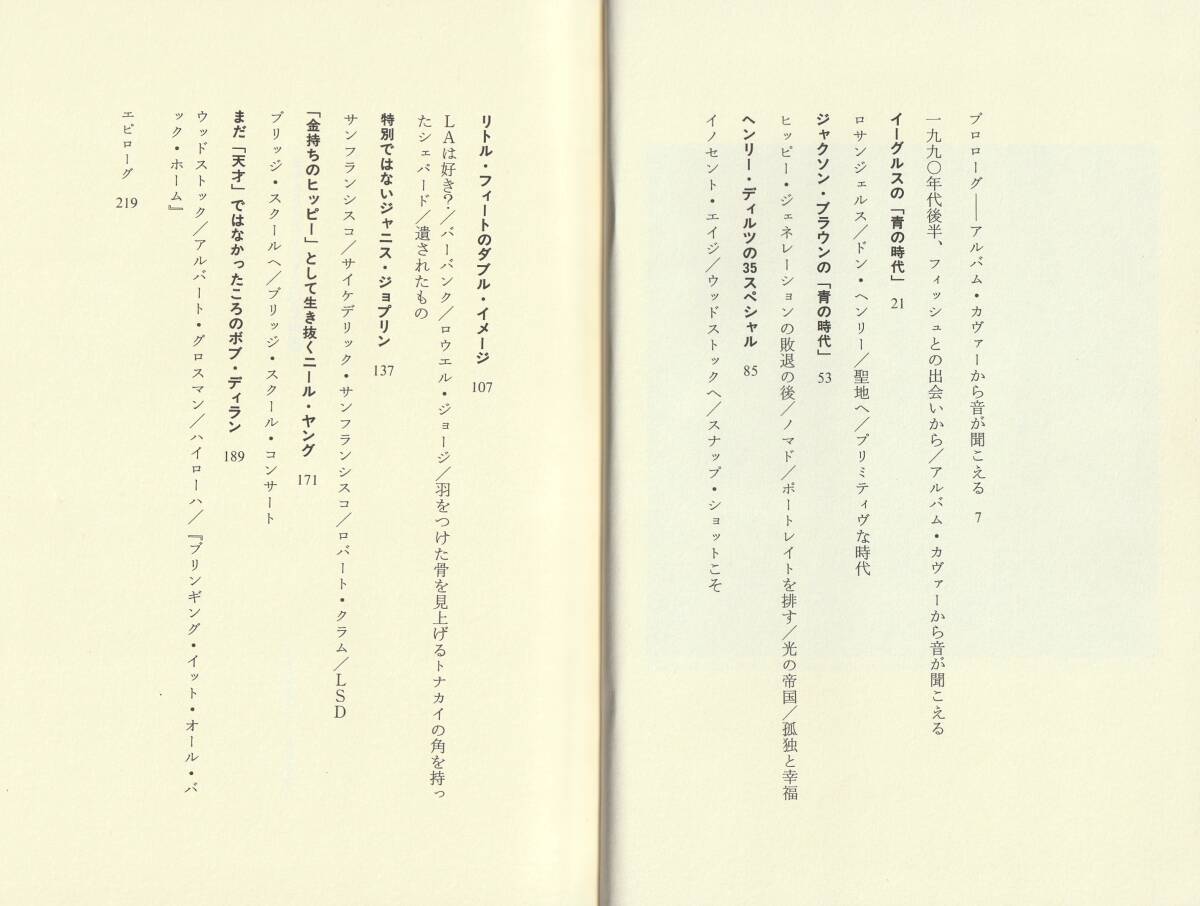 プロローグ――アルバム・カヴァーから音が聞こえる 7
一九九〇年代後半、フィッシュとの出会いから/アルバム・カヴァーから音が聞こえる
イーグルスの「青の時代」 21
ロサンジェルス/ドン・ヘンリー/聖地へ/プリミティヴな時代
ジャクソン・ブラウンの「青の時代」 53
ヒッピー・ジェネレーションの敗退の後/ノマド/ポートレイトを排す/光の帝国/孤独と幸福
ヘンリー・ディルツの35スペシャル 85
イノセント・エイジ/ウッドストックへ/スナップ・ショットこそ
リトル・フィートのダブル・イメージ 107
LAは好き?/バーバンク/ロウエル・ジョージ/羽をつけた骨を見上げるトナカイの角を持っ
たシェパード/遺されたもの
特別ではないジャニス・ジョプリン 137
サンフランシスコ/サイケデリック・サンフランシスコ/ロバート・クラム/LSD
「金持ちのヒッピー」として生き抜くニール・ヤング 171
ブリッジ・スクールへ/ブリッジ・スクール・コンサート
まだ「天才」ではなかったころのボブ・ディラン 189
ウッドストック/アルバート・グロスマン/ハイローハ/『ブリンギング・イット・オール・バ
ック・ホーム』
エピローグ 219